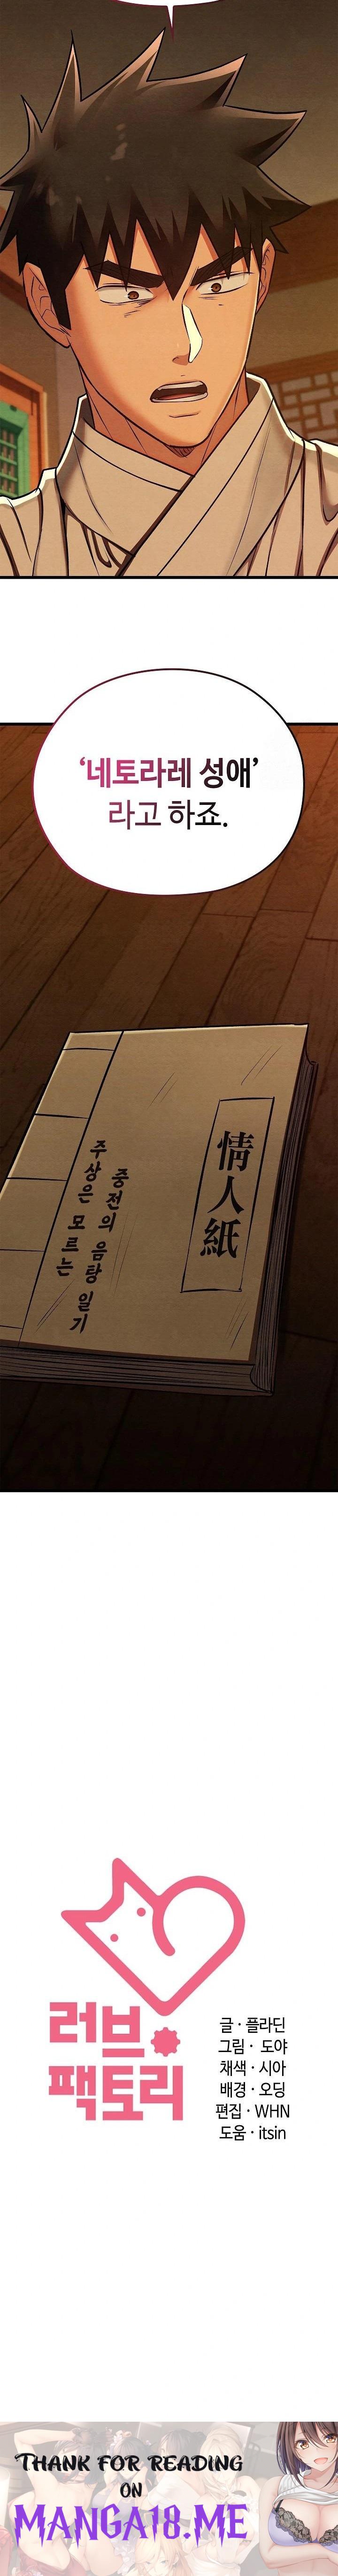 ‘네토라레 성애’
라고 하죠.
情人紙
중전의 음탕 일기
주상은 모르는
러브
팩토리
글 · 플라딘
그림 · 도야
채색 · 시아
배경 · 오딩
편집 · WHN
도움 · itsin
THANK FOR READING
ON
MANGA18.ME